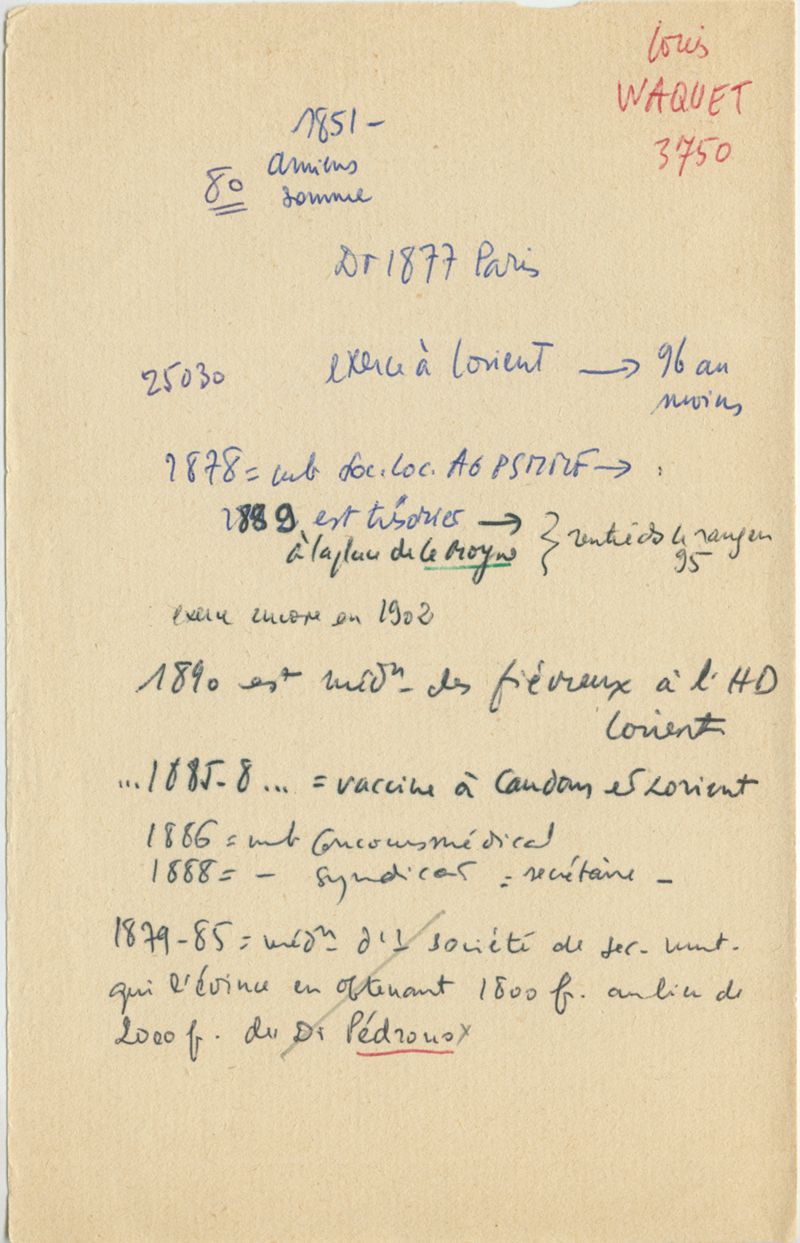 Loris
WAQUET
3750
1851 -
80
amiens
somme
Dr 1877 Paris
25030
exerce à Lorient → 96 au
moins
1878 = mb Soc. Loc. AG →
1889 est trésorier →
à la place de Le Moyne } rentré ds le rang en
95
exerce encore en 1902
1890 est médn. des fiévreux à l'HD
Lorient
...1885-8... = vaccine à Caudan et Lorient
1886 = mb Concours médical
1888 = - syndicat = secrétaire -
1879-85 = médn. d'1 société de sec. mut.
qui l'évince en obtenant 1800 fr. au lieu de
2000 f. du Dr Pédrono x